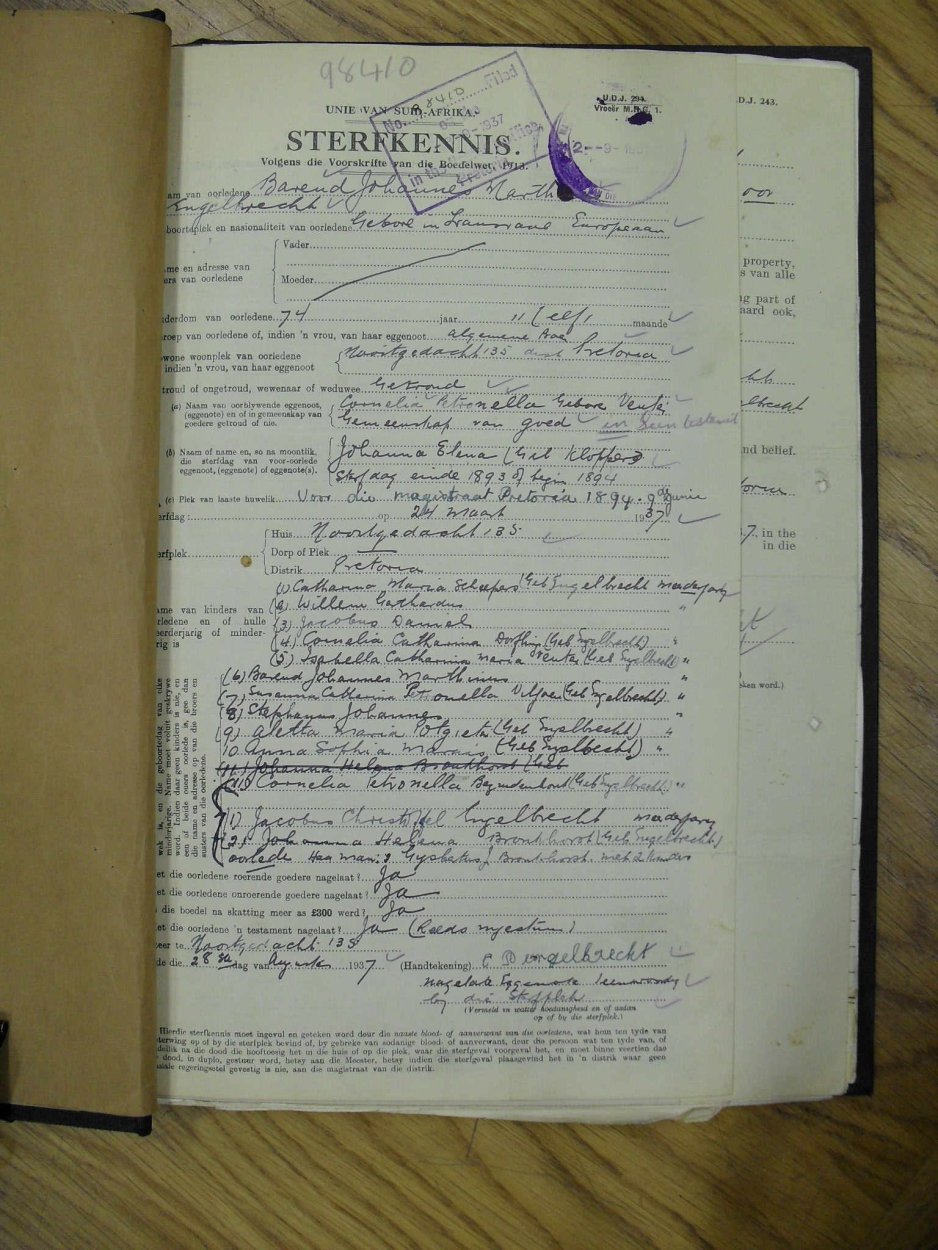 98410
U.D.J. 294.
Vroeër M.H.G. 1.
UNIE VAN SUID-AFRIKA.
No. 98410 Filed
1937
in the Office
Pretoria
2--9-193
STERFKENNIS.
Volgens die Voorskrifte van die Boedelwet, 1913.
am van oorledene Barend Johannes Marth
Engelbrecht
boorteplek en nasionaliteit van oorledene Gebore in Transvaal Europeaan
me en adresse van
ers van oorledene
Vader
Moeder
derdom van oorledene 74 jaar 11 (elf) maande
roep van oorledene of, indien 'n vrou, van haar eggenoot algemene Boer
wone woonplek van oorledene
indien 'n vrou, van haar eggenoot
Nooitgedacht 135 dist Pretoria
troud of ongetroud, wewenaar of weduwee Getroud
(a) Naam van oorblywende eggenoot,
(eggenote) en of in gemeenskap van
goedere getroud of nie.
Cornelia Petronella Gebore Venter
Gemeenskap van goed en Seen testament
(b) Naam of name en, so na moontlik,
die sterfdag van voor-oorlede
eggenoot, (eggenote) of eggenote(s).
Johanna Elena (Geb Kloppers)
Sterfdag einde 1893 of begin 1894
(c) Plek van laaste huwelik. Voor die magistraat Pretoria 1894. 9de Junie
erfdag: op 24 Maart 1937
erfplek
Huis Nooitgedacht 135
Dorp of Plek
Distrik Pretoria
ame van kinders van
rledene en of hulle
eerderjarig of minder-
rig is
(1) Catharina Maria Scheepers (Geb Engelbrecht meederjarig
(2) Willem Gerhardus "
(3) Jacobus Daniel
(4) Cornelia Catharina Dorfling (Geb Engelbrecht) "
(5) Isabella Catharina Maria Venter (Geb Engelbrecht) "
(6) Barend Johannes Marthinus "
(7) Susanna Catherina Petronella Viljoen (Geb Engelbrecht) "
(8) Stephanus Johannes "
(9) Aletta Maria Potgieter (Geb Engelbrecht) "
10. Anna Sophia Marais (Geb Engelbrecht) "
(11) Johanna Helena Bronkhorst (Geb
(11) Cornelia Petronella Bezuidenhout (Geb Engelbrecht) "
wek is, en die geboortedag van elke
minderjarige. Name moet voluit geskrywe
word. Indien daar geen kinders is nie, en
een of beide ouers oorlede is, gee dan
die name en adresse op van die broers en
susters van die oorledene.
(1) Jacobus Christoffel Engelbrecht meederjarig
(2) Johanna Helena Bronkhorst (Geb Engelbrecht)
oorlede Haa man: Gysbertus J Bronkhorst met 2 kinders
et die oorledene roerende goedere nagelaat? Ja
et die oorledene onroerende goedere nagelaat? Ja
die boedel na skatting meer as £300 werd? Ja
et die oorledene 'n testament nagelaat? Ja (Reeds ingestuur)
eer te Nooitgedacht 135
de die 28ste dag van Augustus 1937
(Handtekening) C P Engelbrecht
nagelate Eggenote teenwoordig
by die Sterfplek
(Vermeld in watter hoedanigheid en of aldan
op of by die sterfplek.)
Hierdie sterfkennis moet ingevul en geteken word deur die naaste bloed- of aanverwant van die oorledene, wat hom ten tyde van
terwing op of by die sterfplek bevind of, by gebreke van sodanige bloed- of aanverwant, deur die persoon wat ten tyde van, of
dellik na die dood die hooftoesig het in die huis of op die plek, waar die sterfgeval voorgeval het, en moet binne veertien dae
dood, in duplo, gestuur word, hetsy aan die Meester, hetsy indien die sterfgeval plaasgevind het in 'n distrik waar geen
siale regeringsetel gevestig is nie, aan die magistraat van die distrik.
D.J. 243.
oor
property,
s van alle
ng part of
aard ook,
nd belief.
7, in the
in die
eken word.)